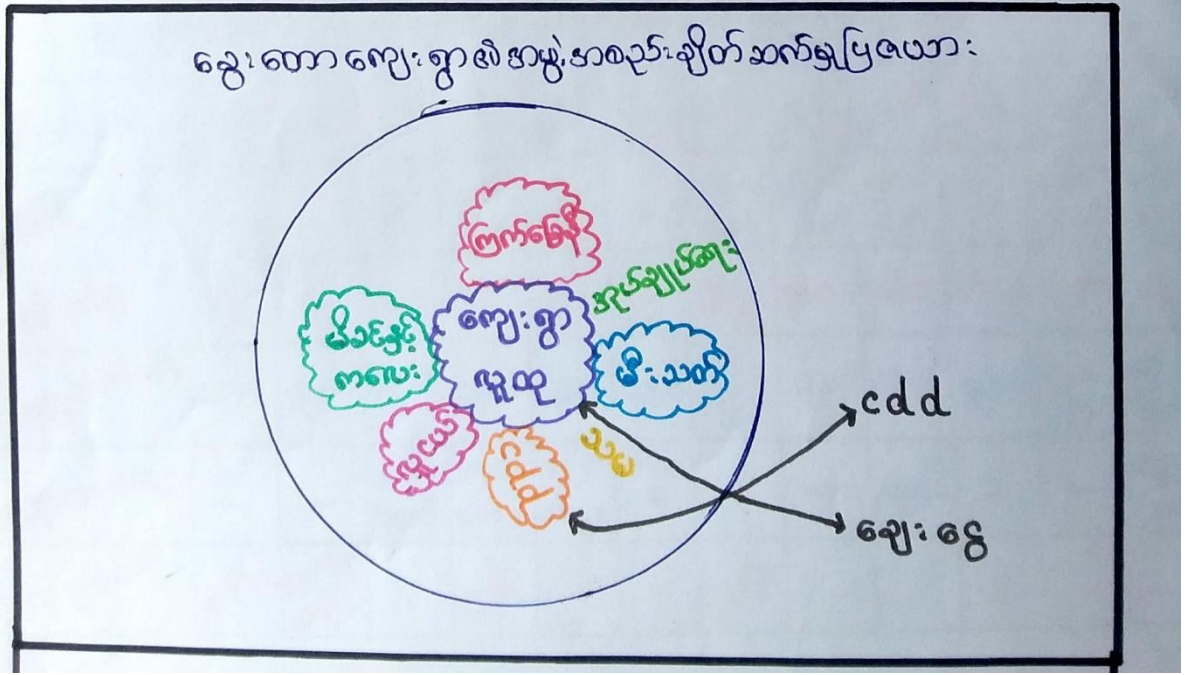 နွေးတောကျေးရွာ၏အဖွဲ့အစည်းချိတ်ဆက်မှုပြဇယား
ကြက်ခြေနီ
အုပ်ချုပ်ရေး
မိခင်နှင့်
ကလေး
ကျေးရွာ
လူထု
မီးသတ်
လူငယ်
cdd
သမ
cdd
ချေးငွေ